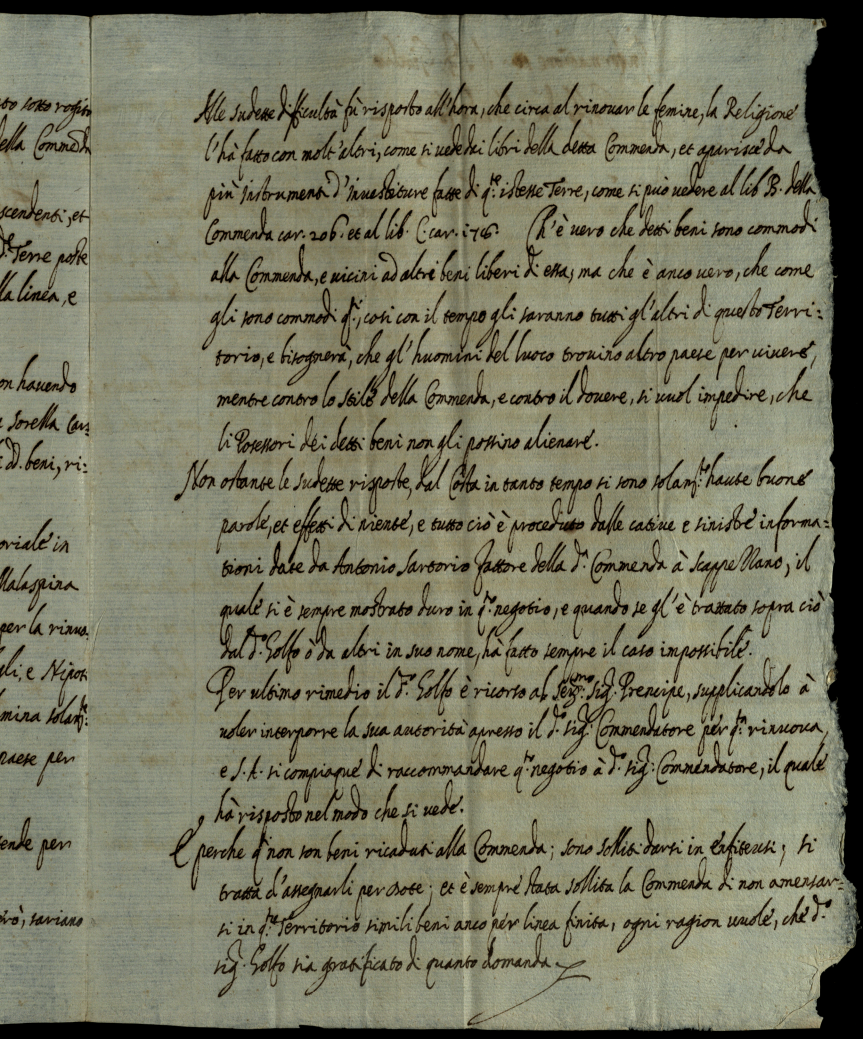 to sotto
ella Commeda
scendenti, et
d.e Terre poste
lla linea, e
on havendo
sorella
d. beni, ri:
oriale in
Malaspina
per la rinuo:
gli, e Nipoti
mina solam.te
paese per
ende per
rò, sariano
Alle sudette difficultà fù risposto all'hora, che circa al rinouar le femine, la Religione
l'hà fatto con molt'altri, come si vede dai libri della detta Commenda, et aparisce da
più instrumenti d'Inuestiture fatte di q.te istesse Terre, come si può vedere al lib. B. della
Commenda car. 206. et al lib. C. car. 176. Ch'è vero che detti beni sono commodi
alla Commenda, e uicini ad altri beni liberi di essa; ma che è anco uero, che come
gli sono commodi q.ti, cosi con il tempo gli saranno tutti gl'altri di questo Terri:
torio, e bisognerà, che gl'huomini del luoco trouino altro paese per uiuere,
mentre contro lo stile della Commenda, e contro il douere, si vuol impedire, che
li Posessori dei detti beni non gli possino alienare.
Non ostante le sudette risposte, dal Costa in tanto tempo si sono solam.te haute buone
parole, et effetti di niente, e tutto ciò è proceduto dalle catiue e sinistre informa:
tioni date da Antonio Sartorio fattore della d.a Commenda à Scappezzano, il
quale si è sempre mostrato duro in q.to negotio, e quando se gl'è trattato sopra ciò
dal d.o Golfo ò da altri in suo nome, hà fatto sempre il caso impossibile.
Per ultimo rimedio il d.o Golfo è ricorso al Ser.mo Sig.r Prencipe, supplicandolo à
uoler interporre la sua autorità apresso il d.o Sig.r Commendatore per q.ta rinuoua,
e S. A. si compiaque di raccommandare q.to negotio à d.o Sig.r Commendatore, il quale
hà risposto nel modo che si vede.
E perche q.ti non son beni ricaduti alla Commenda; sono solliti darsi in enfiteusi; si
tratta d'assegnarli per dote; et è sempre stata sollita la Commenda di non amensar:
si in q.to Territorio simili beni anco per linea finita, ogni ragion vuole, che d.o
Sig.r Golfo sia gratificato di quanto domanda